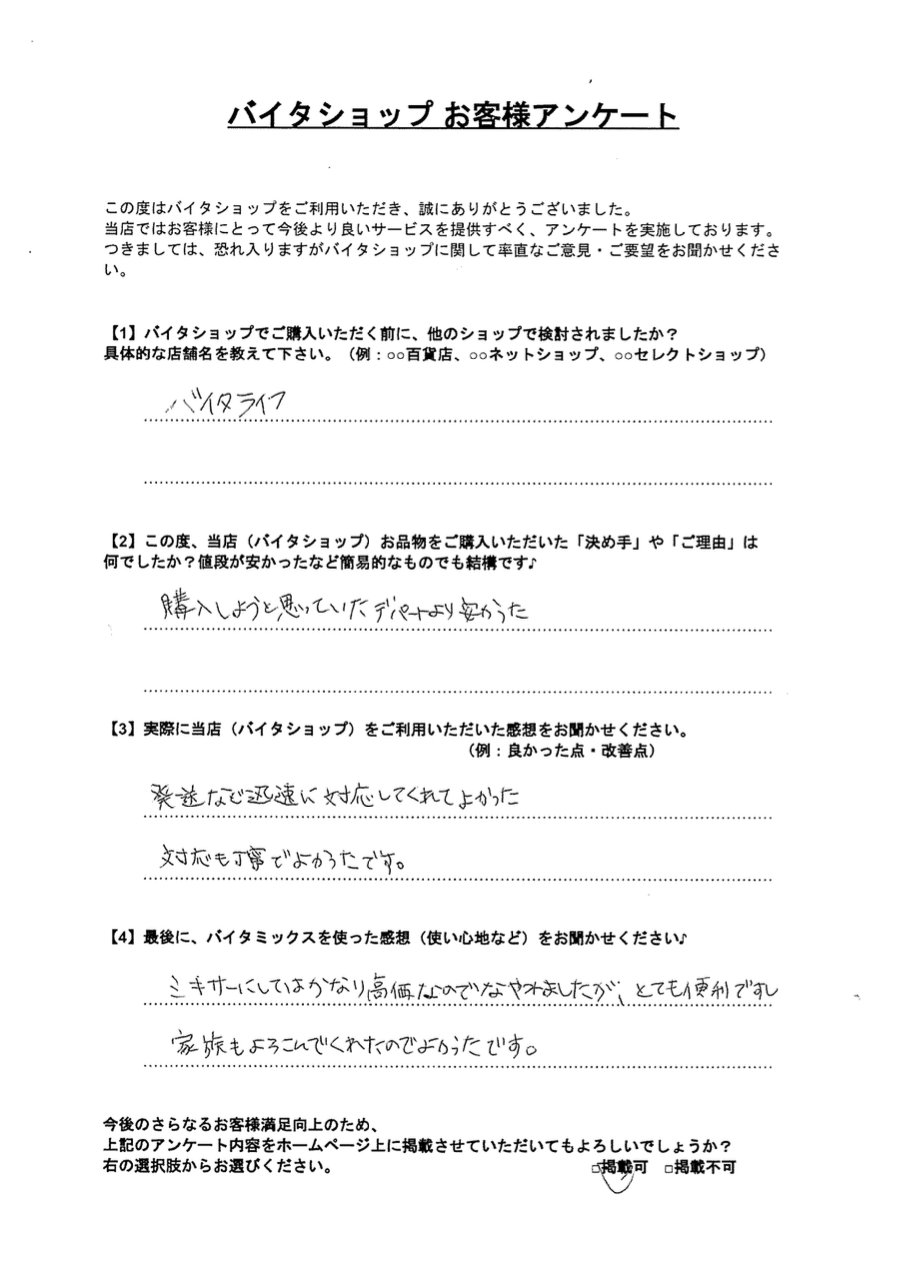 バイタショップ お客様アンケート
この度はバイタショップをご利用いただき、誠にありがとうございました。
当店ではお客様にとって今後より良いサービスを提供すべく、アンケートを実施しております。
つきましては、恐れ入りますがバイタショップに関して率直なご意見・ご要望をお聞かせくださ
い。
【1】バイタショップでご購入いただく前に、他のショップで検討されましたか？
具体的な店舗名を教えて下さい。（例：○○百貨店、○○ネットショップ、○○セレクトショップ）
バイタライフ
【2】この度、当店（バイタショップ）お品物をご購入いただいた「決め手」や「ご理由」は
何でしたか？値段が安かったなど簡易的なものでも結構です♪
購入しようと思っていたデパートより安かった
【3】実際に当店（バイタショップ）をご利用いただいた感想をお聞かせください。
（例：良かった点・改善点）
発送など迅速に対応してくれてよかった
対応も丁寧でよかったです。
【4】最後に、バイタミックスを使った感想（使い心地など）をお聞かせください♪
ミキサーにしてはかなり高価なのでなやみましたが、とても便利ですし
家族もよろこんでくれたのでよかったです。
今後のさらなるお客様満足向上のため、
上記のアンケート内容をホームページ上に掲載させていただいてもよろしいでしょうか？
右の選択肢からお選びください。 □掲載可 □掲載不可